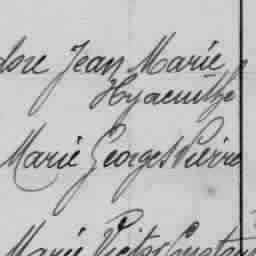 Jean Marie
Hyacinthe
Marie Georges Pierre
Marie Victor